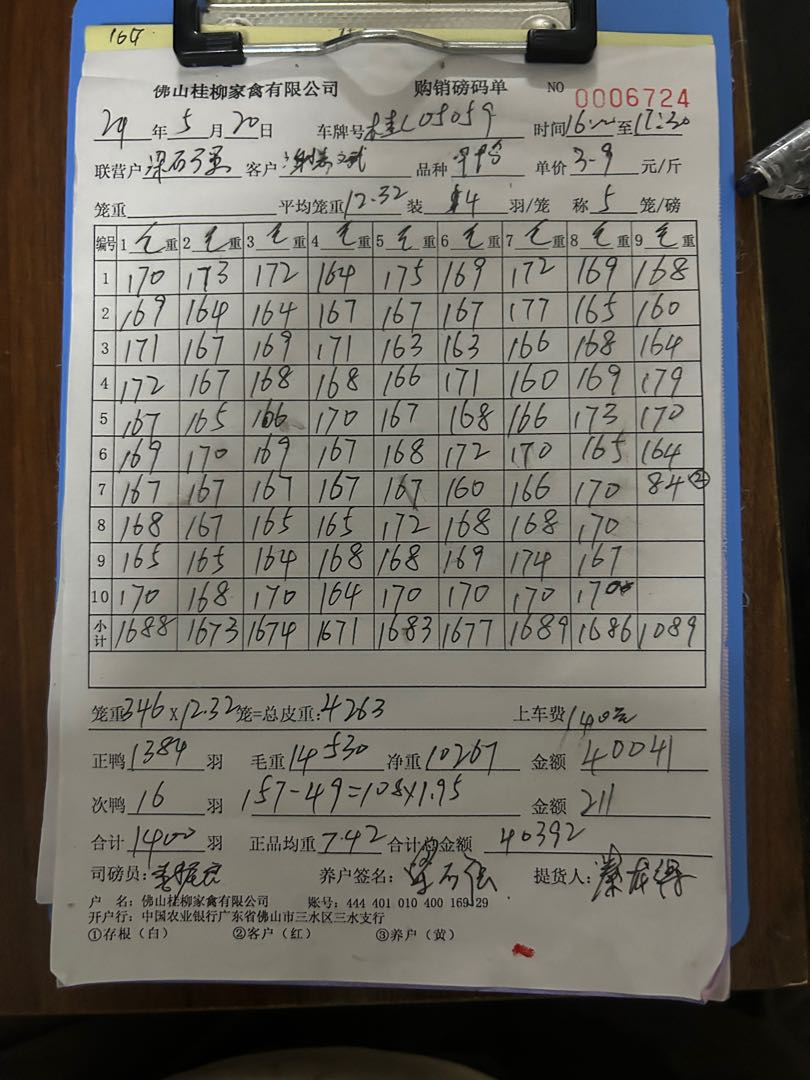 164
佛山桂柳家禽有限公司 购销磅码单 NO 0006724
24年5月20日 车牌号桂L05059 时间16: 至17:30
联营户梁石强 客户 品种 单价3-9元/斤
笼重 平均笼重12.32 装4羽/笼 称5笼/磅
编号 1毛重 2毛重 3毛重 4毛重 5毛重 6毛重 7毛重 8毛重 9毛重
1 170 173 172 164 175 169 172 169 168
2 169 164 164 167 167 167 177 165 160
3 171 167 169 171 163 163 166 168 164
4 172 167 168 168 166 171 160 169 179
5 167 165 166 170 167 168 166 173 170
6 169 170 169 167 168 172 170 165 164
7 167 167 167 167 167 160 166 170 84②
8 168 167 165 165 172 168 168 170
9 165 165 164 168 168 169 174 167
10 170 168 170 164 170 170 170 170
小计 1688 1673 1674 1671 1683 1677 1689 1686 1089
笼重346×12.32笼=总皮重:4263 上车费140元
正鸭1384羽 毛重14530 净重10267 金额40041
次鸭16羽 157-49=108×1.95 金额211
合计1400羽 正品均重7.42 合计总金额40392
司磅员: 养户签名:梁石强 提货人:
户 名:佛山桂柳家禽有限公司 账号:444 401 010 400 169 29
开户行:中国农业银行广东省佛山市三水区三水支行
①存根（白） ②客户（红） ③养户（黄）